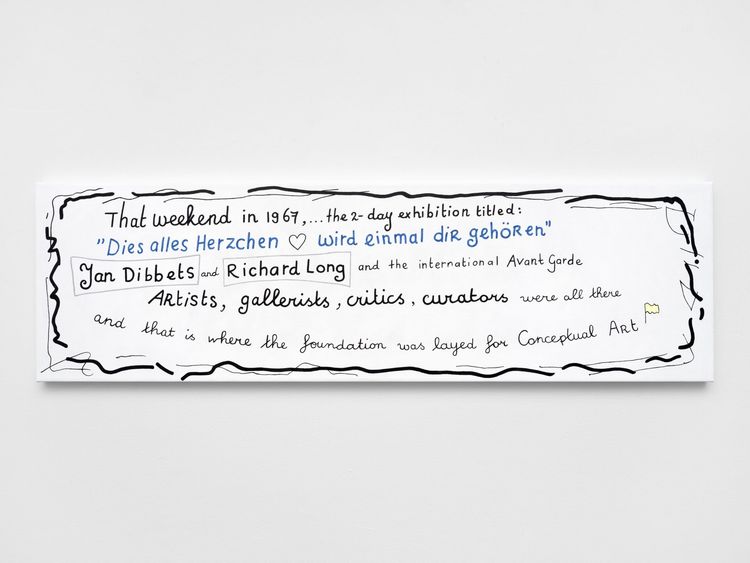 That weekend in 1967,...the 2-day exhibition titled:
"Dies alles Herzchen ♡ wird einmal dir gehören"
Jan Dibbets and Richard Long and the international Avant Garde
Artists, gallerists, critics, curators were all there
and that is where the foundation was layed for Conceptual Art